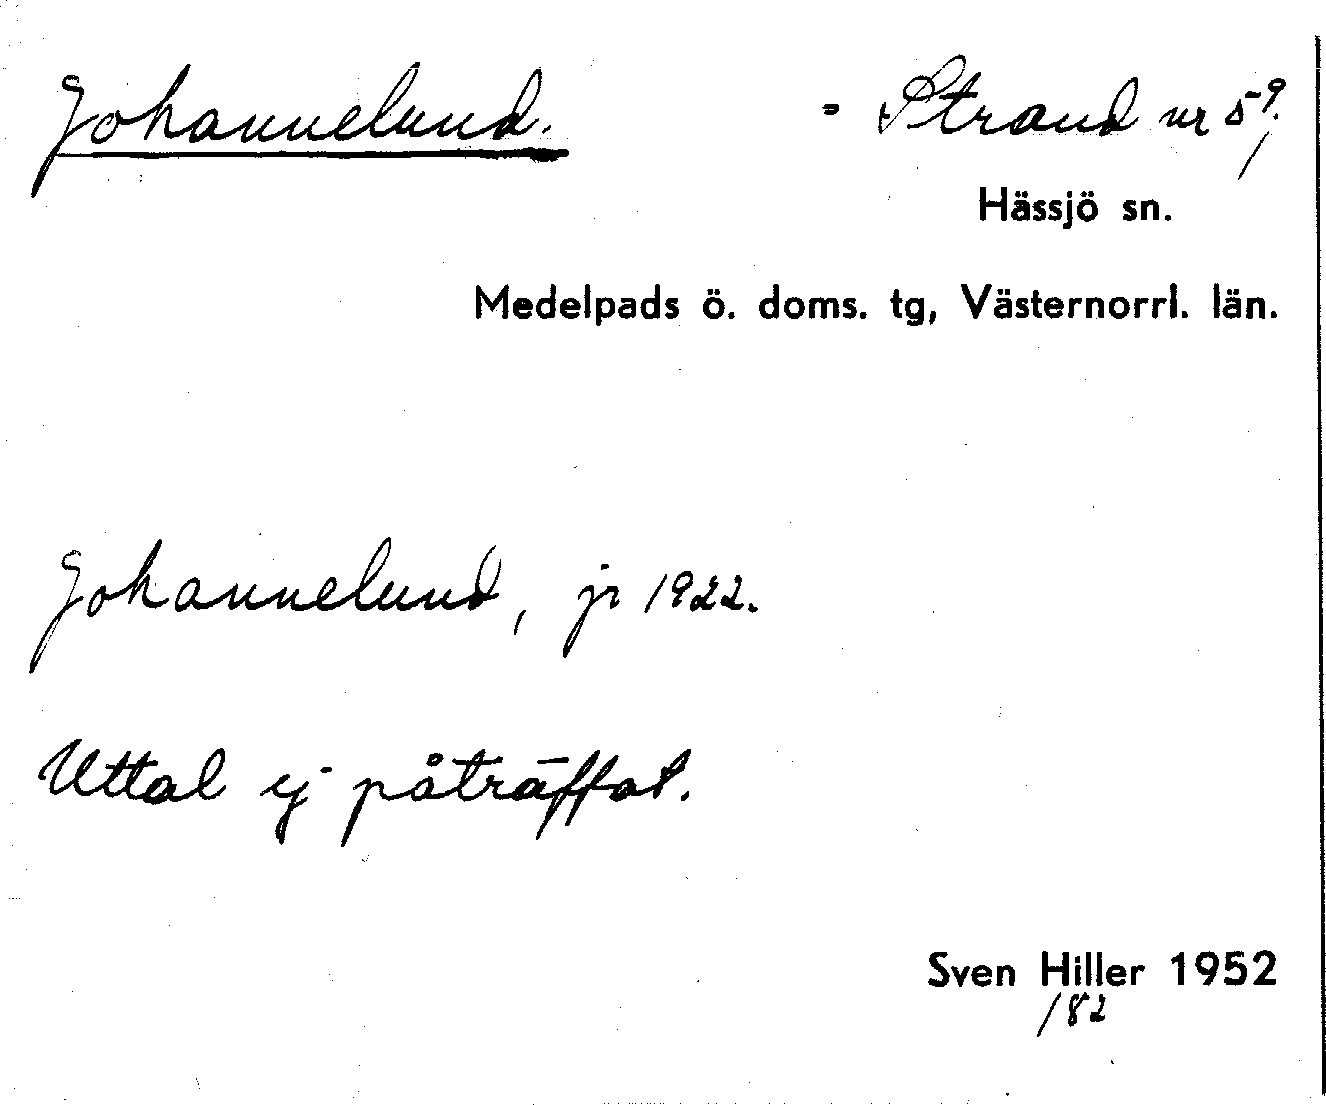 Johannelund. = Strand nr 5⁹/
Hässjö sn.
Medelpads ö. doms. tg, Västernorrl. län.
Johannelund, jr 1922.
Uttal ej påträffat.
Sven Hiller 1952
182